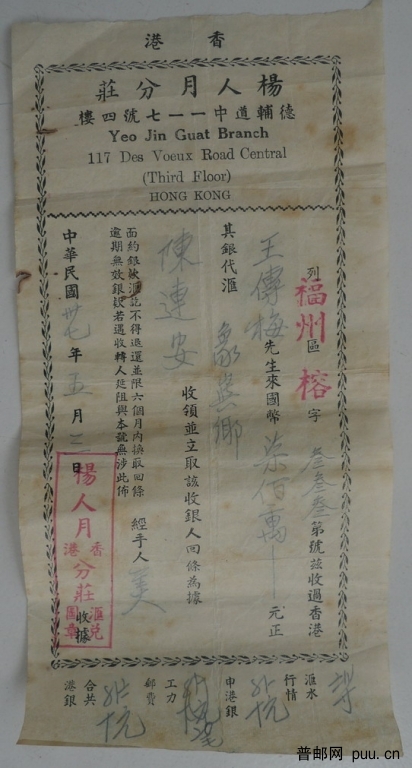 香港
楊人月分莊
德輔道中一一七號四樓
Yeo Jin Guat Branch
117 Des Voeux Road Central
(Third Floor)
HONG KONG
列福州區榕字叁叁叁第號茲收過香港
王傳梅先生來國幣柒佰萬元正
其銀代滙鄉
陳連安收領並立取該收銀人回條為據
經手人
面約銀欵滙訖不得退還並限六個月內換取回條
逾期無效銀欵若遇收轉人延阻與本號無涉此佈
中華民國卅七年五月二日
楊人月
香港
分莊
滙兌
收據
圖章
滙水
行情
申港銀
工力
郵費
合共
港銀
普邮网 puu.cn